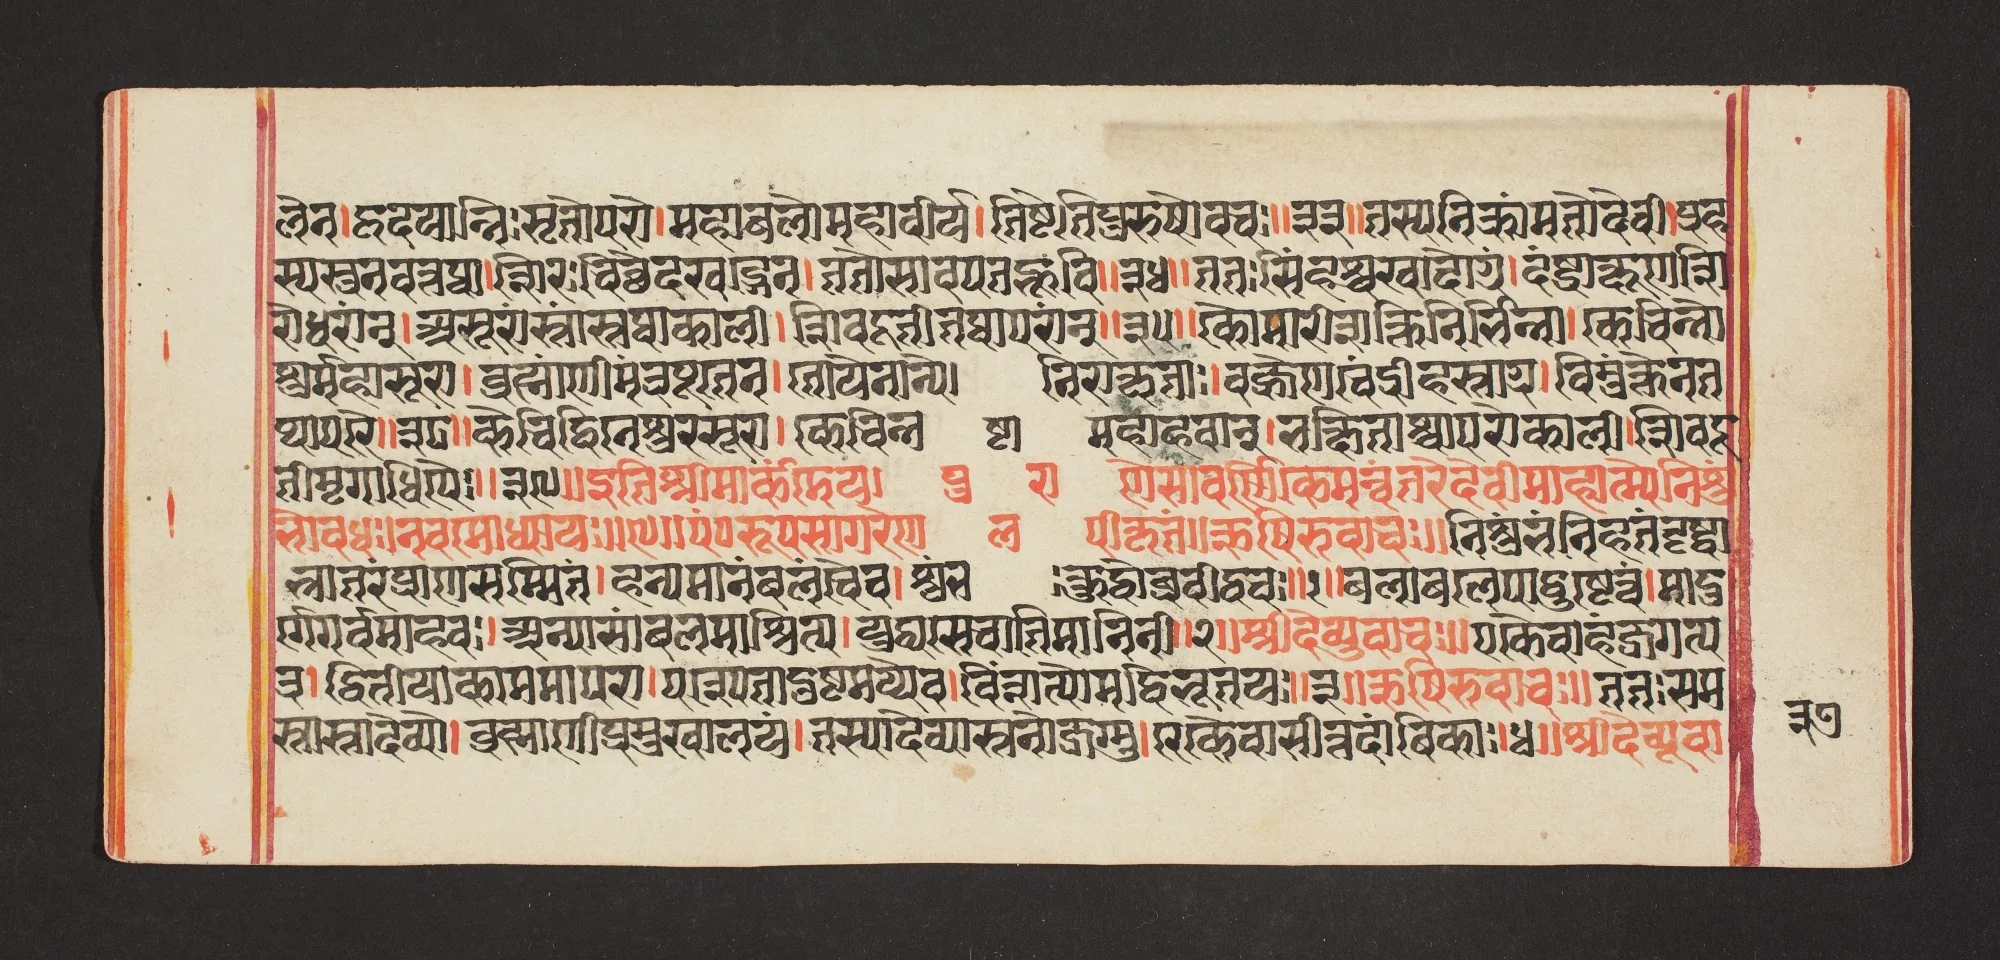 लेन।हृदयान्निःसृतोपरो।महाबलोमहावीर्य।तिष्टेतिपुरुषोवचः॥३३॥तस्यनिक्रांमतोदेवी।प्रह
स्यस्वनवत्तथा।शिरःचिछेदखड्गेन।ततोसावपतद्भुवि॥३४॥ततःसिंहश्चखादोग्रं।दंष्ट्राक्षूणशि
रोधरान्।असूरांस्तांस्तथाकाली।शिवदूतीतथापरान्॥३५॥कौमारीशक्तिनिर्भिन्ना।केचिन्ने
शुर्महासूरा।ब्रह्माणीमंत्रपूतेन।तोयेनान्ये। निराकृताः।वज्रेणचैंद्रीहस्ताग्र।विमुक्तेनत
थापरे॥३८॥केचिद्विनेशुरसूरा।केचिन्न ष्टा महाहवात्।भक्षिताश्चापरेकाली।शिवदू
तीमृगाधिपैः॥३९॥इतिश्रीमार्कंडेय। पु रा णेसावर्णिकेमन्वंतरेदेवीमाहात्म्येनिशुं
भोवधः।नवमोध्यायः॥९॥पं॰रूपसागरेण ल पीकृतं॥ऋषिरुवाचः॥निशुंभंनिहतंदृष्ट्वा
भ्रातरंप्राणसम्मितं।हन्यमानंबलंचैव।शुंभ ःक्रुद्धोब्रवीद्वचः॥१॥बलाबलेपाद्दुष्टेत्वं।मादु
र्गेगर्वमाहवः।अन्यासांबलमाश्रित्य।युद्ध्यसेचातिमानिनी॥२॥श्रीदेव्युवाचः॥एकैवाहंजगत्य
त्र।द्वितीयाकाममापरा।पश्यैतादुष्टमय्येव।विशंत्योमद्विभूतयः॥३॥ऋषिरुवाचः॥ततःसम
स्तास्तादेव्यो।ब्रह्माणीप्रमुखालयं।तस्यादेव्यास्तनोजग्मु।रेकैवासीत्तदांबिकाः।४॥श्रीदेव्यूवा
३७